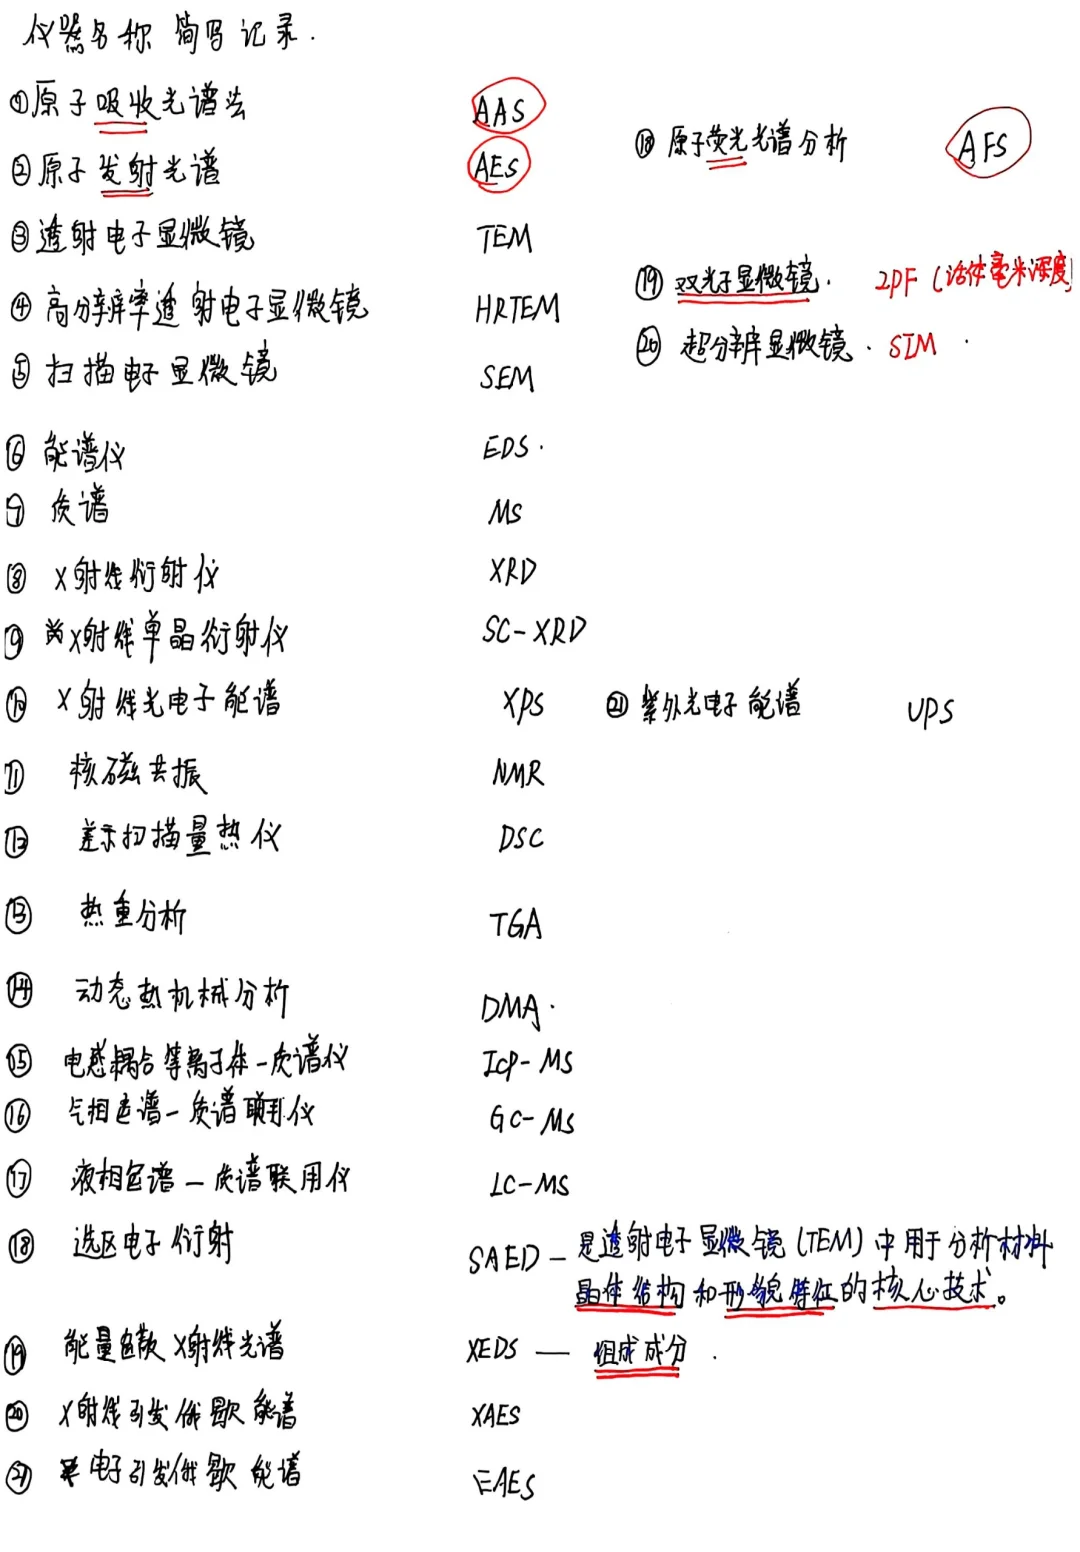 仪器名称 简写 记录.
①原子吸收光谱法 AAS
②原子发射光谱 AES
⑱原子荧光光谱分析 AFS
③透射电子显微镜 TEM
⑲双光子显微镜. 2PF (活体毫米深度)
④高分辨率透射电子显微镜 HRTEM
⑳超分辨显微镜. SIM
⑤扫描电子显微镜 SEM
⑥能谱仪 EDS.
⑦质谱 MS
⑧X射线衍射仪 XRD
⑨X射线单晶衍射仪 SC-XRD
⑩X射线光电子能谱 XPS ㉑紫外光电子能谱 UPS
⑪核磁共振 NMR
⑫差示扫描量热仪 DSC
⑬热重分析 TGA
⑭动态热机械分析 DMA.
⑮电感耦合等离子体-质谱仪 ICP-MS
⑯气相色谱-质谱联用仪 GC-MS
⑰液相色谱-质谱联用仪 LC-MS
⑱选区电子衍射 SAED-是透射电子显微镜(TEM)中用于分析材料
晶体结构和形貌特征的核心技术。
⑲能量色散X射线光谱 XEDS — 组成成分.
⑳X射线引发俄歇能谱 XAES
㉑电子引发俄歇能谱 EAES